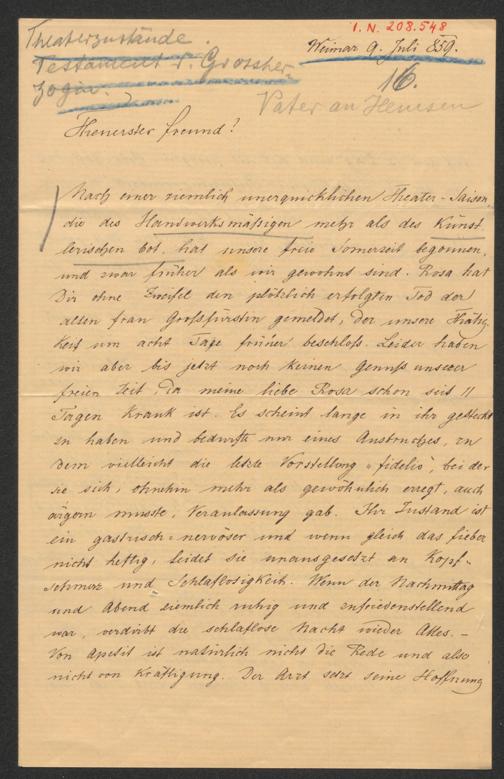 I. N. 208.548
Theaterzustände.
Testament d. Grossher-
zogin.
Weimar 9. Juli 859.
16.
Vater an Hemsen
Theuerster Freund!
Nach einer ziemlich unerquicklichen Theater-Saison,
die des Handwerksmäßigen mehr als des Künst
lerischen bot, hat unsere freie Somerzeit begonnen,
und zwar früher als wir gewohnt sind. Rosa hat
Dir ohne Zweifel den plötzlich erfolgten Tod der
alten Frau Großfürstin gemeldet, der unsere Thätig
keit um acht Tage früher beschloß. Leider haben
wir aber bis jetzt noch keinen Genuß unserer
freien Zeit, da meine liebe Rosa schon seit 11
Tagen krank ist. Es scheint lange in ihr gesteckt
zu haben und bedurfte nur eines Ausbruches, zu
dem vielleicht die letzte Vorstellung „Fidelio", bei der
sie sich, ohnehin mehr als gewöhnlich erregt, auch
ärgern musste, Veranlassung gab. Ihr Zustand ist
ein gastrisch-nervöser und wenn gleich das Fieber
nicht heftig, leidet sie unausgesetzt an Kopf-
schmerz und Schlaflosigkeit. Wenn der Nachmittag
und Abend ziemlich ruhig und zufriedenstellend
war, verdirbt die schlaflose Nacht wieder Alles. –
Von Apetit ist natürlich nicht die Rede und also
nicht von Kräftigung. Der Arzt setzt seine Hoffnung